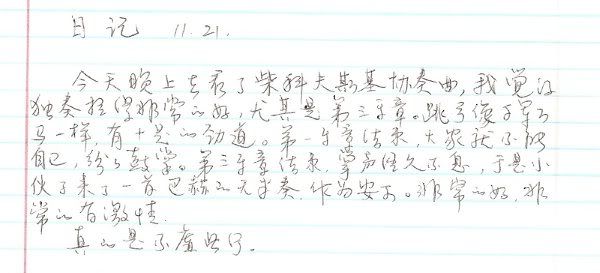 日记 11.21.
今天晚上去看了柴科夫斯基协奏曲,我觉得
独奏拉得非常的好,尤其是第三乐章。跳弓像千军万
马一样,有十足的劲道。第一乐章结束,大家就不能
自已,纷纷鼓掌。第三乐章结束,掌声经久不息,于是小
伙子来了一首巴赫的无伴奏,作为安可。非常的好,非
常的有激情.
真的是不虚此行。